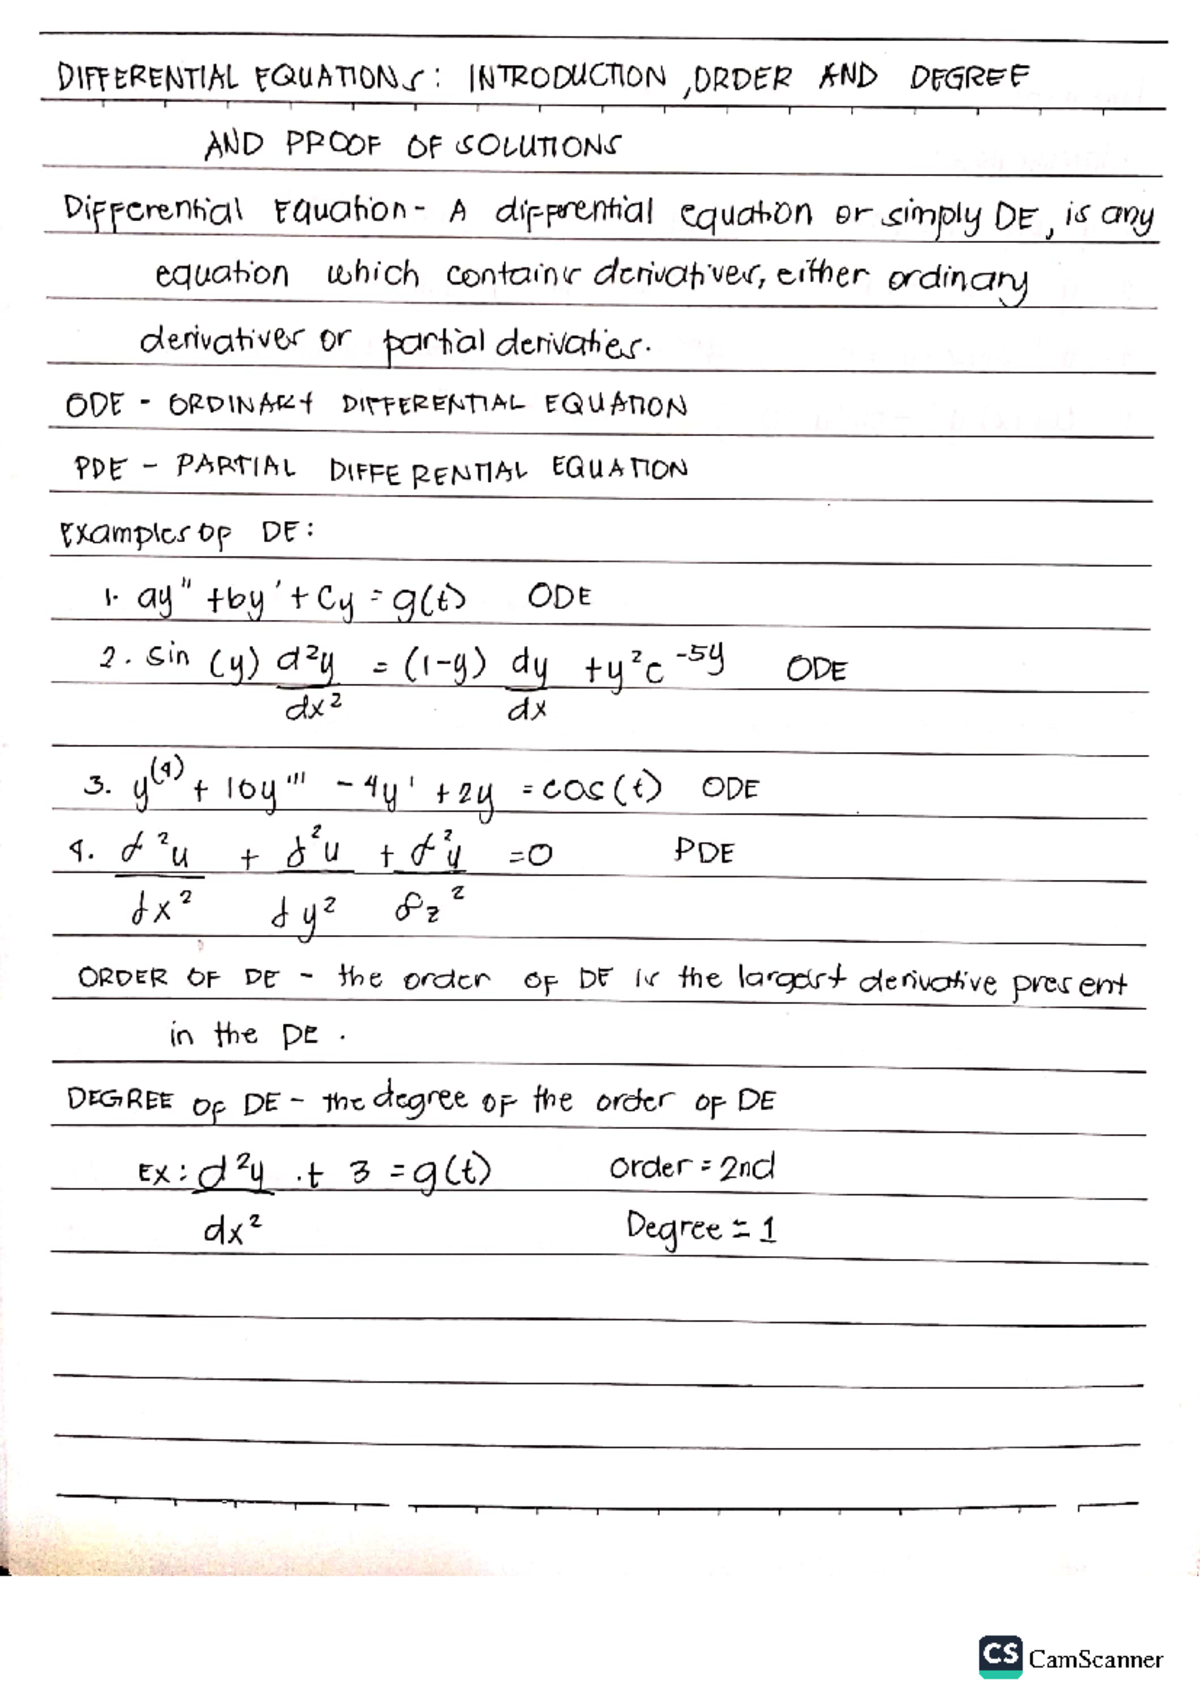 DIFFERENTIAL EQUATIONS: INTRODUCTION, ORDER AND DEGREE
AND PROOF OF SOLUTIONS
Differential Equation - A differential equation or simply DE, is any
equation which contains derivatives, either ordinary
derivatives or partial derivaties.
ODE - ORDINARY DIFFERENTIAL EQUATION
PDE - PARTIAL DIFFERENTIAL EQUATION
Examples of DE:
1. ay" + by' + Cy = g(t) ODE
2. Sin (y) d²y/dx² = (1-y) dy/dx + y²e^-5y ODE
3. y^(4) + 10y''' - 4y' + 2y = cos(t) ODE
4. ∂²u/∂x² + ∂²u/∂y² + ∂²u/∂z² = 0 PDE
ORDER OF DE - the order of DE is the largest derivative present
in the DE.
DEGREE OF DE - the degree of the order of DE
EX: d²y/dx² + 3 = g(t) Order = 2nd
Degree = 1
CS CamScanner